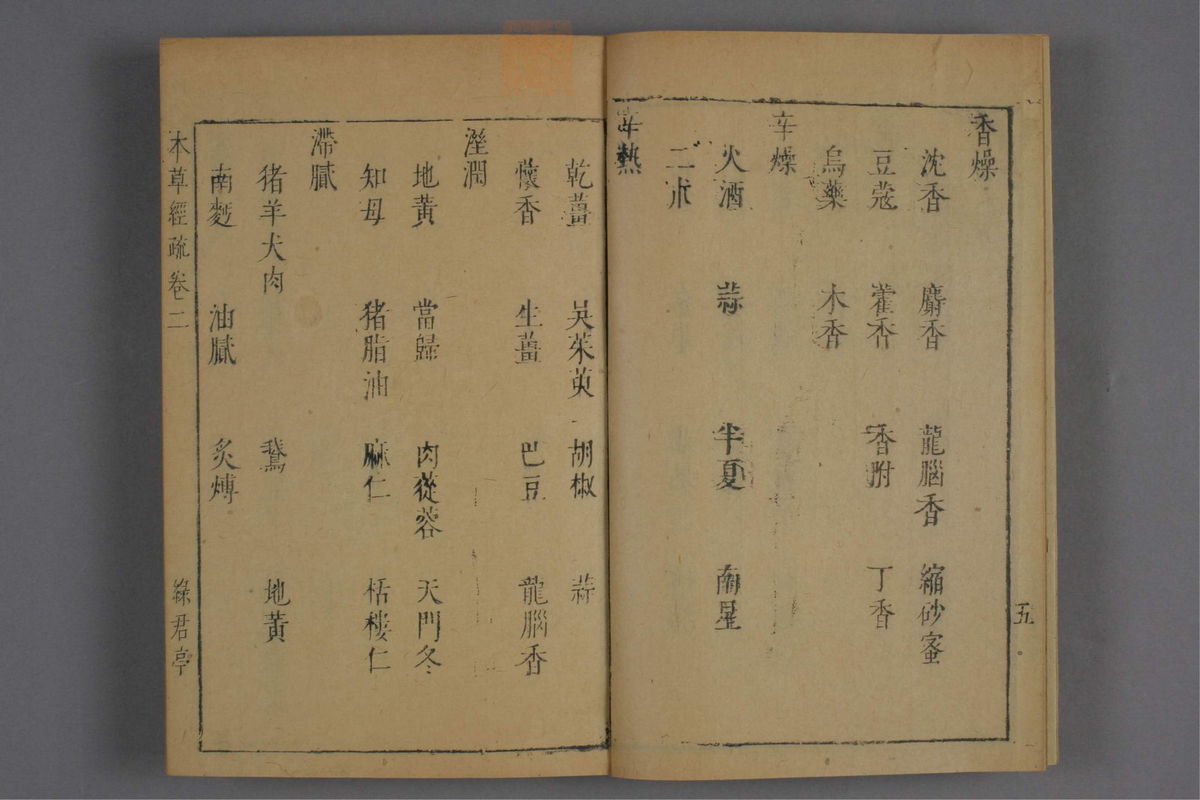 香燥
沈香 麝香 龍腦香 縮砂蜜
豆蔻 藿香 香附 丁香
烏藥 木香
辛燥
火酒 蒜 半夏 南星
二朮
辛熱
五
乾薑 吳茱萸 胡椒 蒜
懷香 生薑 巴豆 龍腦香
溼潤
地黃 當歸 肉蓯蓉 天門冬
知母 猪脂油 麻仁 栝樓仁
滯膩
猪羊犬肉 鵞 地黃
南麪 油膩 炙煿
本草經疏卷二 綠君亭